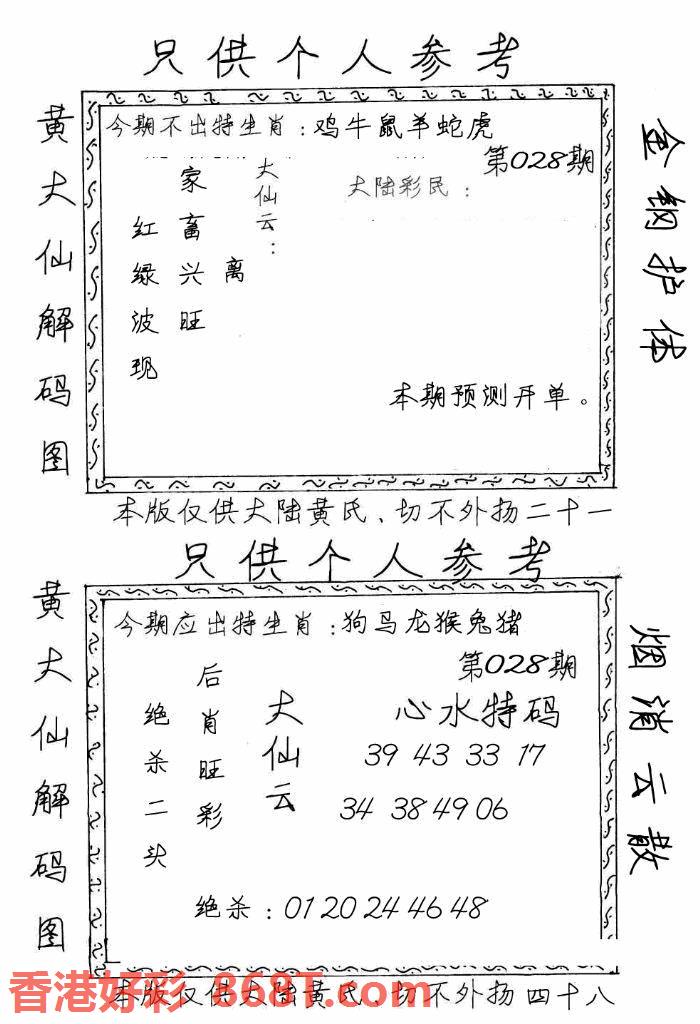 只供个人参考
黄大仙解码图
今期不出特生肖：鸡牛鼠羊蛇虎
第028期
大仙云：
大陆彩民：
离
家畜兴旺
红绿波现
本期预测开单。
金钢护体
本版仅供大陆黄氏、切不外扬二十一
只供个人参考
黄大仙解码图
今期应出特生肖：狗马龙猴兔猪
第028期
大仙云
后肖旺彩
绝杀二头
心水特码
39 43 33 17
34 38 49 06
绝杀：01 20 24 46 48
烟消云散
本版仅供大陆黄氏、切不外扬四十八
香港好彩 868T.com